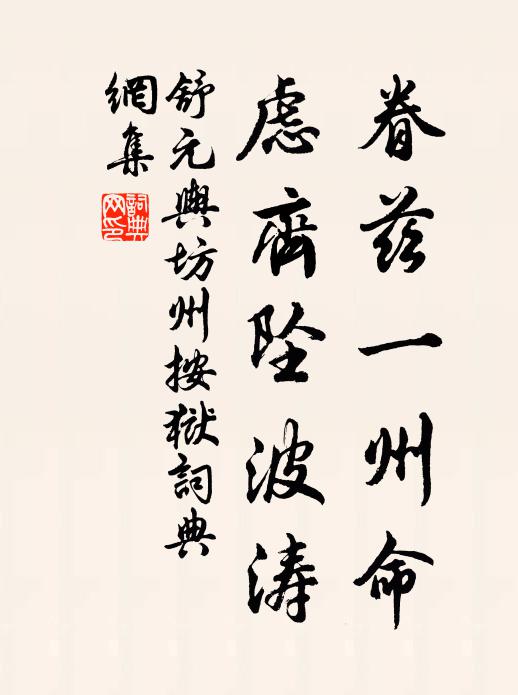 眷茲一州命
慮齊墜波濤
舒元輿坊州按獄詞典
網集
詞典
网印